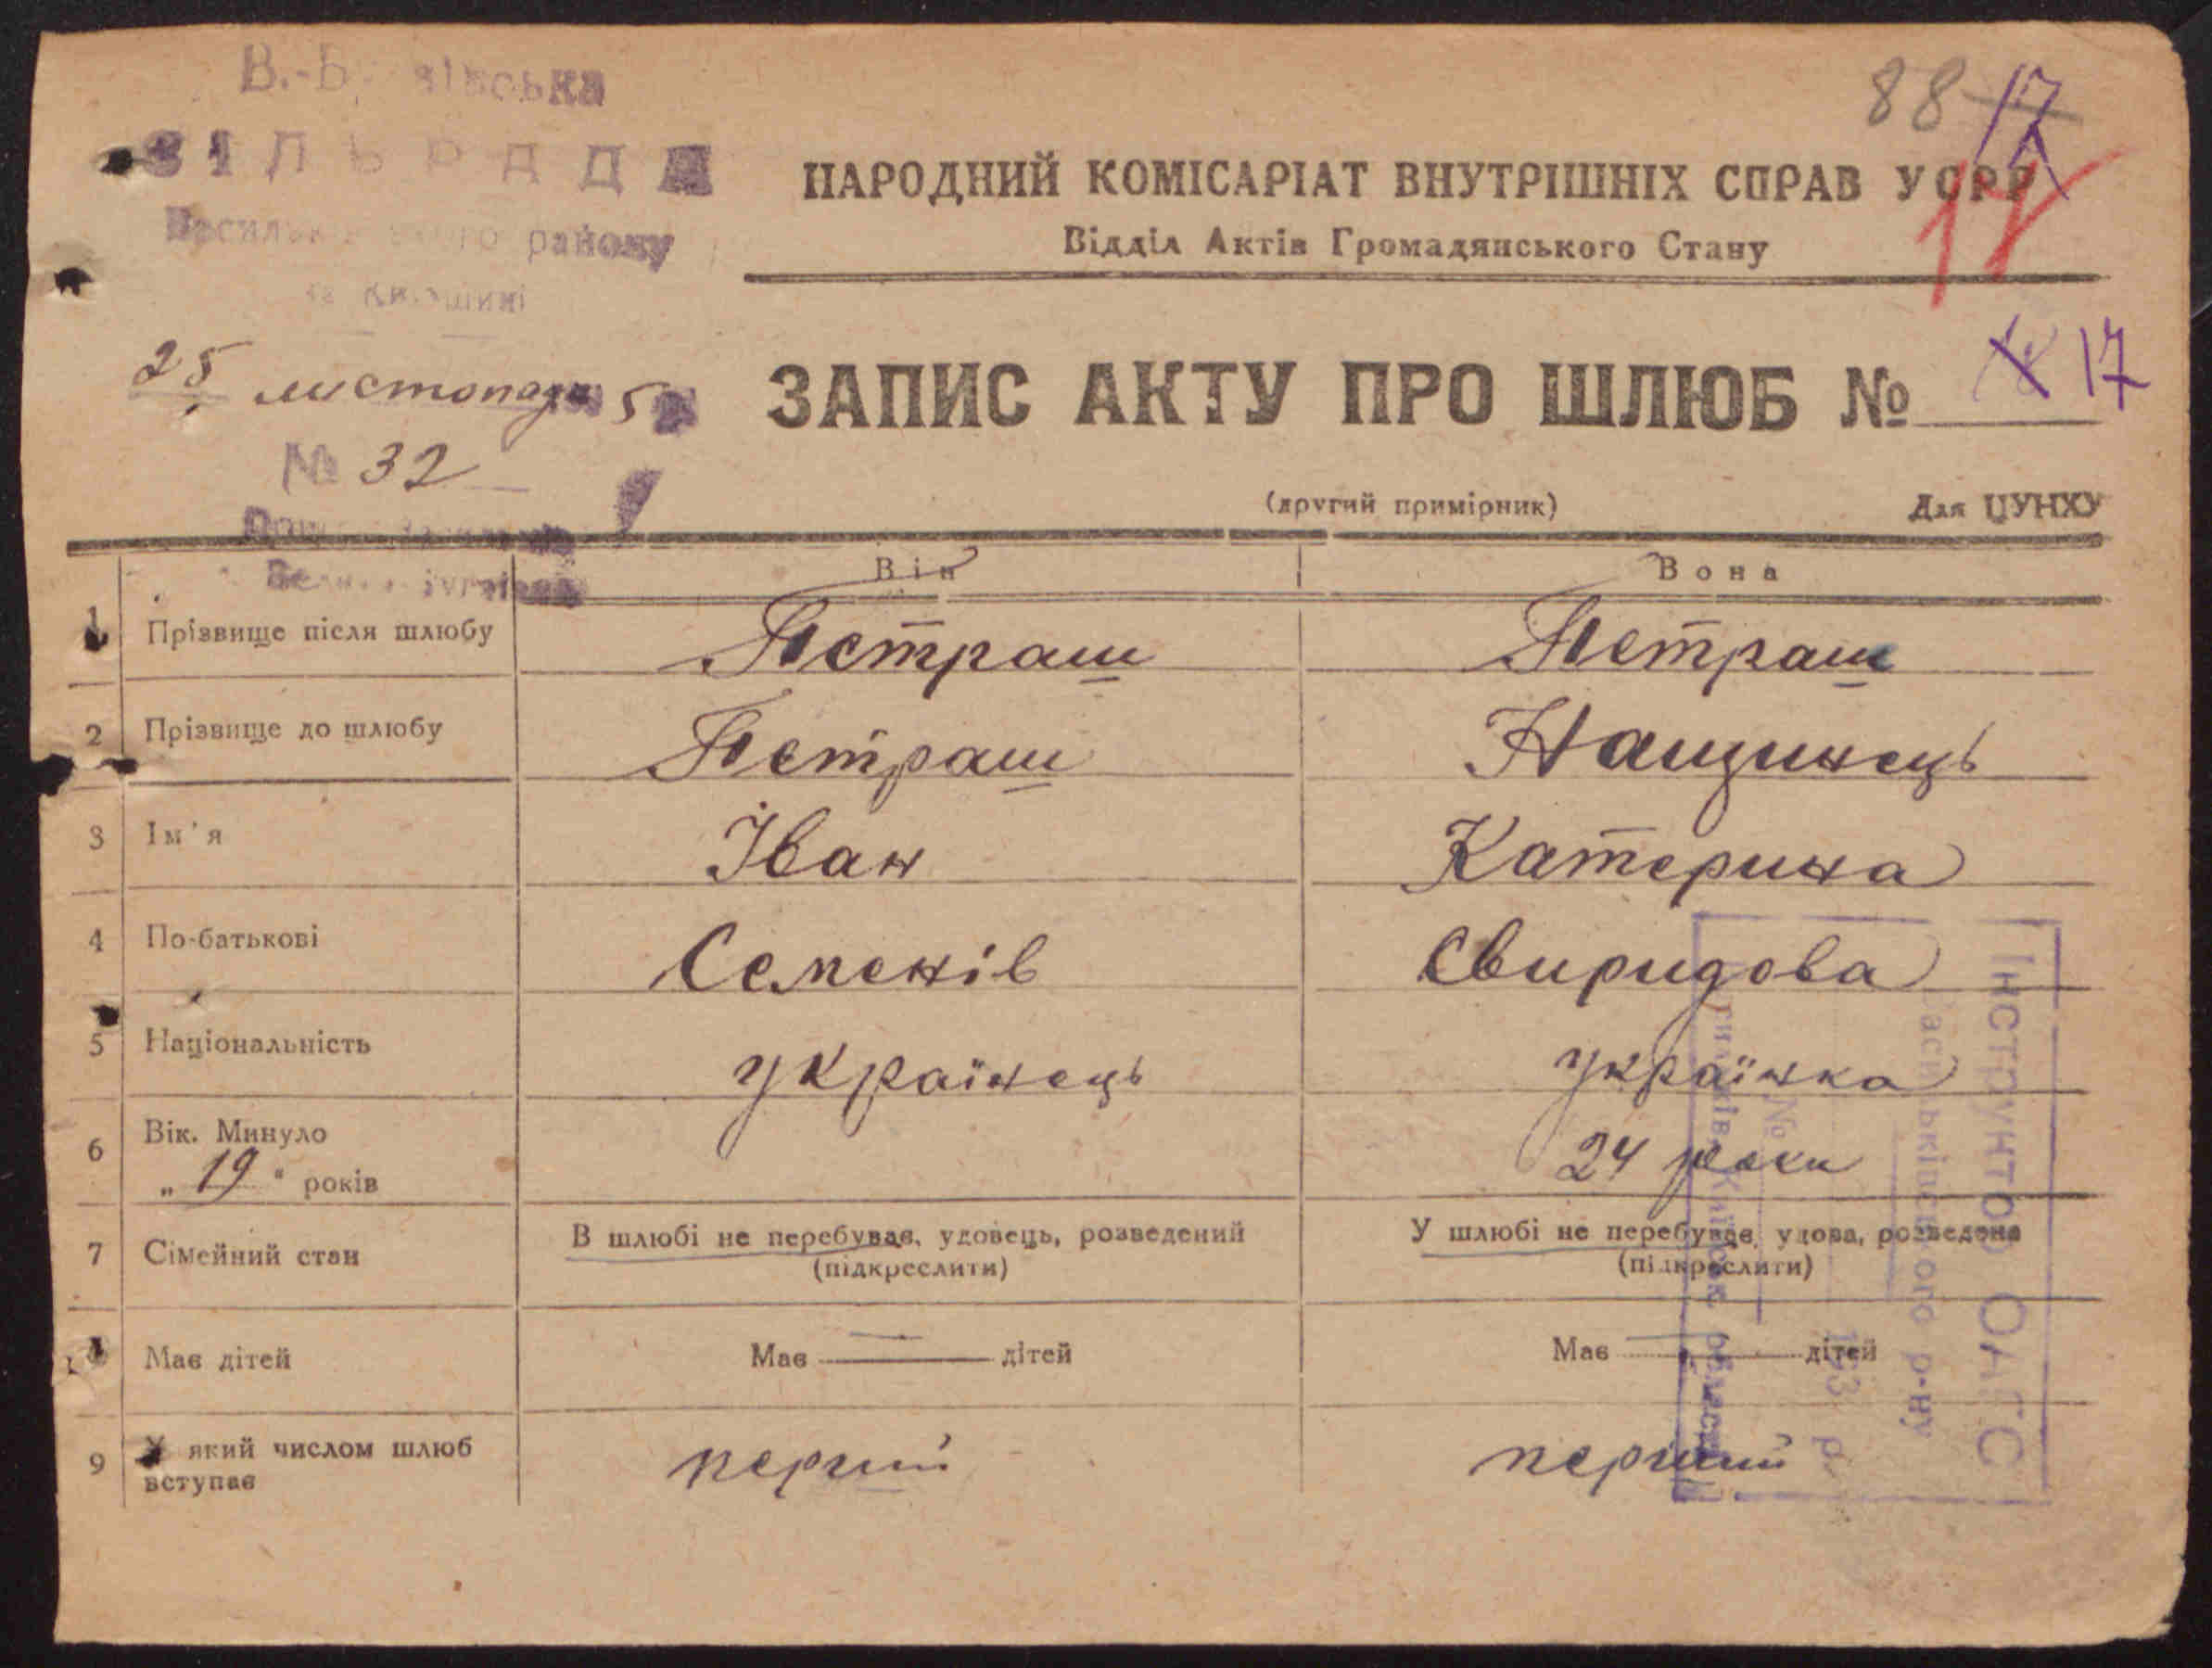 СІЛЬРАДА
району
88 17
17
НАРОДНИЙ КОМІСАРІАТ ВНУТРІШНІХ СПРАВ УСРР
Відділ Актів Громадянського Стану
25 листопада 5
№ 32
ЗАПИС АКТУ ПРО ШЛЮБ № 17
(другий примірник) Для ЦУНХУ
Він Вона
1 Прізвище після шлюбу Петраш Петраш
2 Прізвище до шлюбу Петраш Нащинець
3 Ім'я Іван Катерина
4 По-батькові Семенів Свиридова
5 Національність українець українка
6 Вік. Минуло
„19“ років 24 роки
7 Сімейний стан В шлюбі не перебуває, удовець, розведений У шлюбі не перебуває, удова, розведена
(підкреслити) (підкреслити)
Має дітей Має дітей Має дітей
9 У який числом шлюб вступає перший перший
Інструктор ОАГС
Васильківського р-ну
№
193 р.